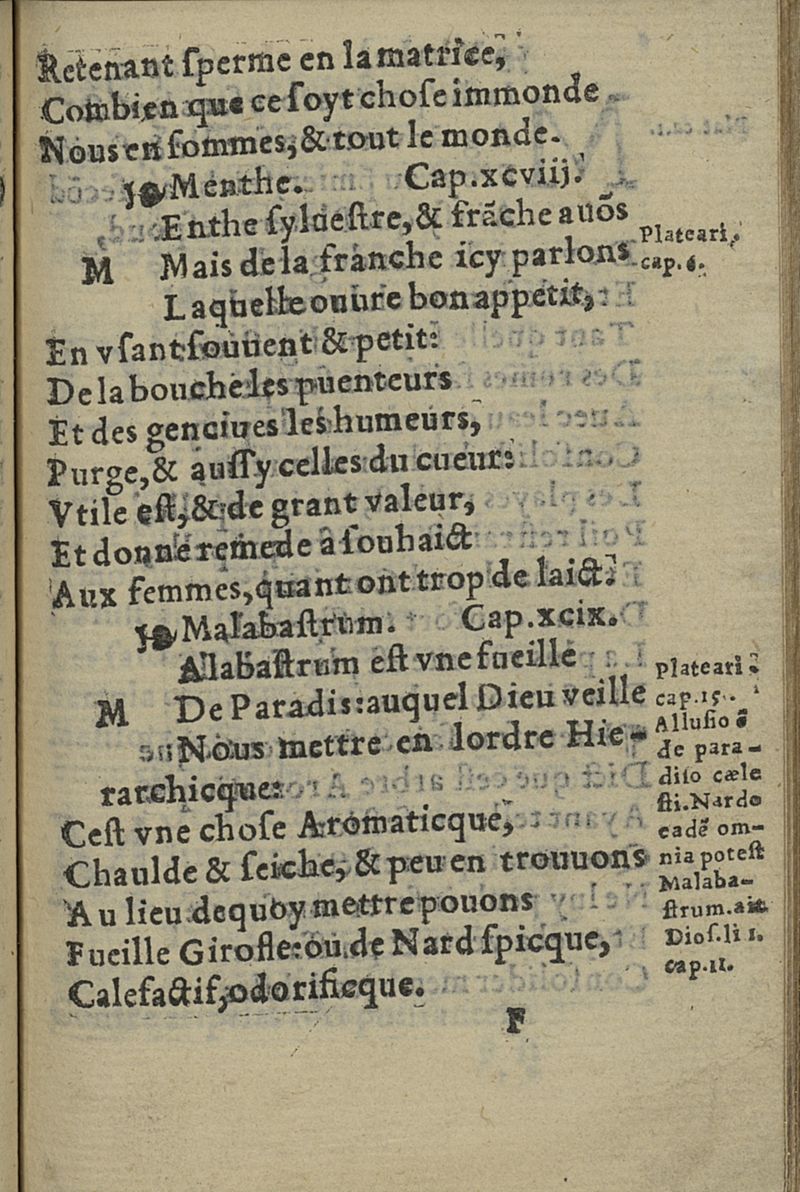 Retenant ſperme en la matrice,
Combien que ce ſoyt choſe immonde
Nous en ſommes, & tout le monde.
❧ Menthe. Cap.xcviij.
Enthe ſylueſtre, & frāche auōs
M Mais de la franche icy parlons
Laquelle ouure bon appetit,
En vſant ſouuent & petit:
De la bouche les puenteurs
Et des genciues les humeurs,
Purge, & auſſy celles du cueur:
Vtile eſt, & de grant valeur,
Et donne remede à ſouhaict
Aux femmes, quant ont trop de laict.
❧ Malabaſtrum. Cap.xcix.
Alabaſtrum eſt vne fueille
M De Paradis: auquel Dieu veille
Nous mettre en lordre Hie-
rarchicque:
Ceſt vne choſe Aromaticque,
Chaulde & ſeiche, & peu en trouuons
Au lieu dequoy mettre pouons
Fueille Girofle: ou de Nard ſpicque,
Calefactif, odorificque.
F
Plateari.
cap. 6.
Plateari.
cap.15.
Alluſio ē
de para-
diſo cæle
ſti. Nardo
eadē om-
nia poteſt
Malaba-
ſtrum. ait
Dioſ. li 1.
cap.11.